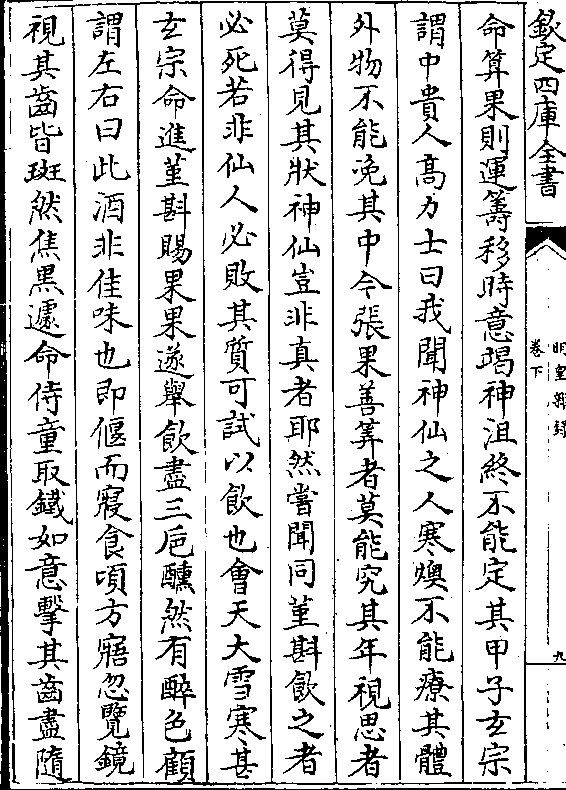 欽定四庫全書
明皇雜錄
卷下
九
命算果則運籌移時意竭神沮終不能定其甲子玄宗
謂中貴人高力士曰我聞神仙之人寒燠不能療其體
外物不能浼其中今張果善算者莫能究其年視思者
莫得見其狀神仙豈非真者耶然嘗聞同堇斟飲之者
必死若非仙人必敗其質可試以飲也會天大雪寒甚
玄宗命進堇斟賜果果遂舉飲盡三卮醺然有醉色顧
謂左右曰此酒非佳味也即偃而寢食頃方寤忽覽鏡
視其齒皆斑然焦黑遽命侍童取鐵如意擊其齒盡隨